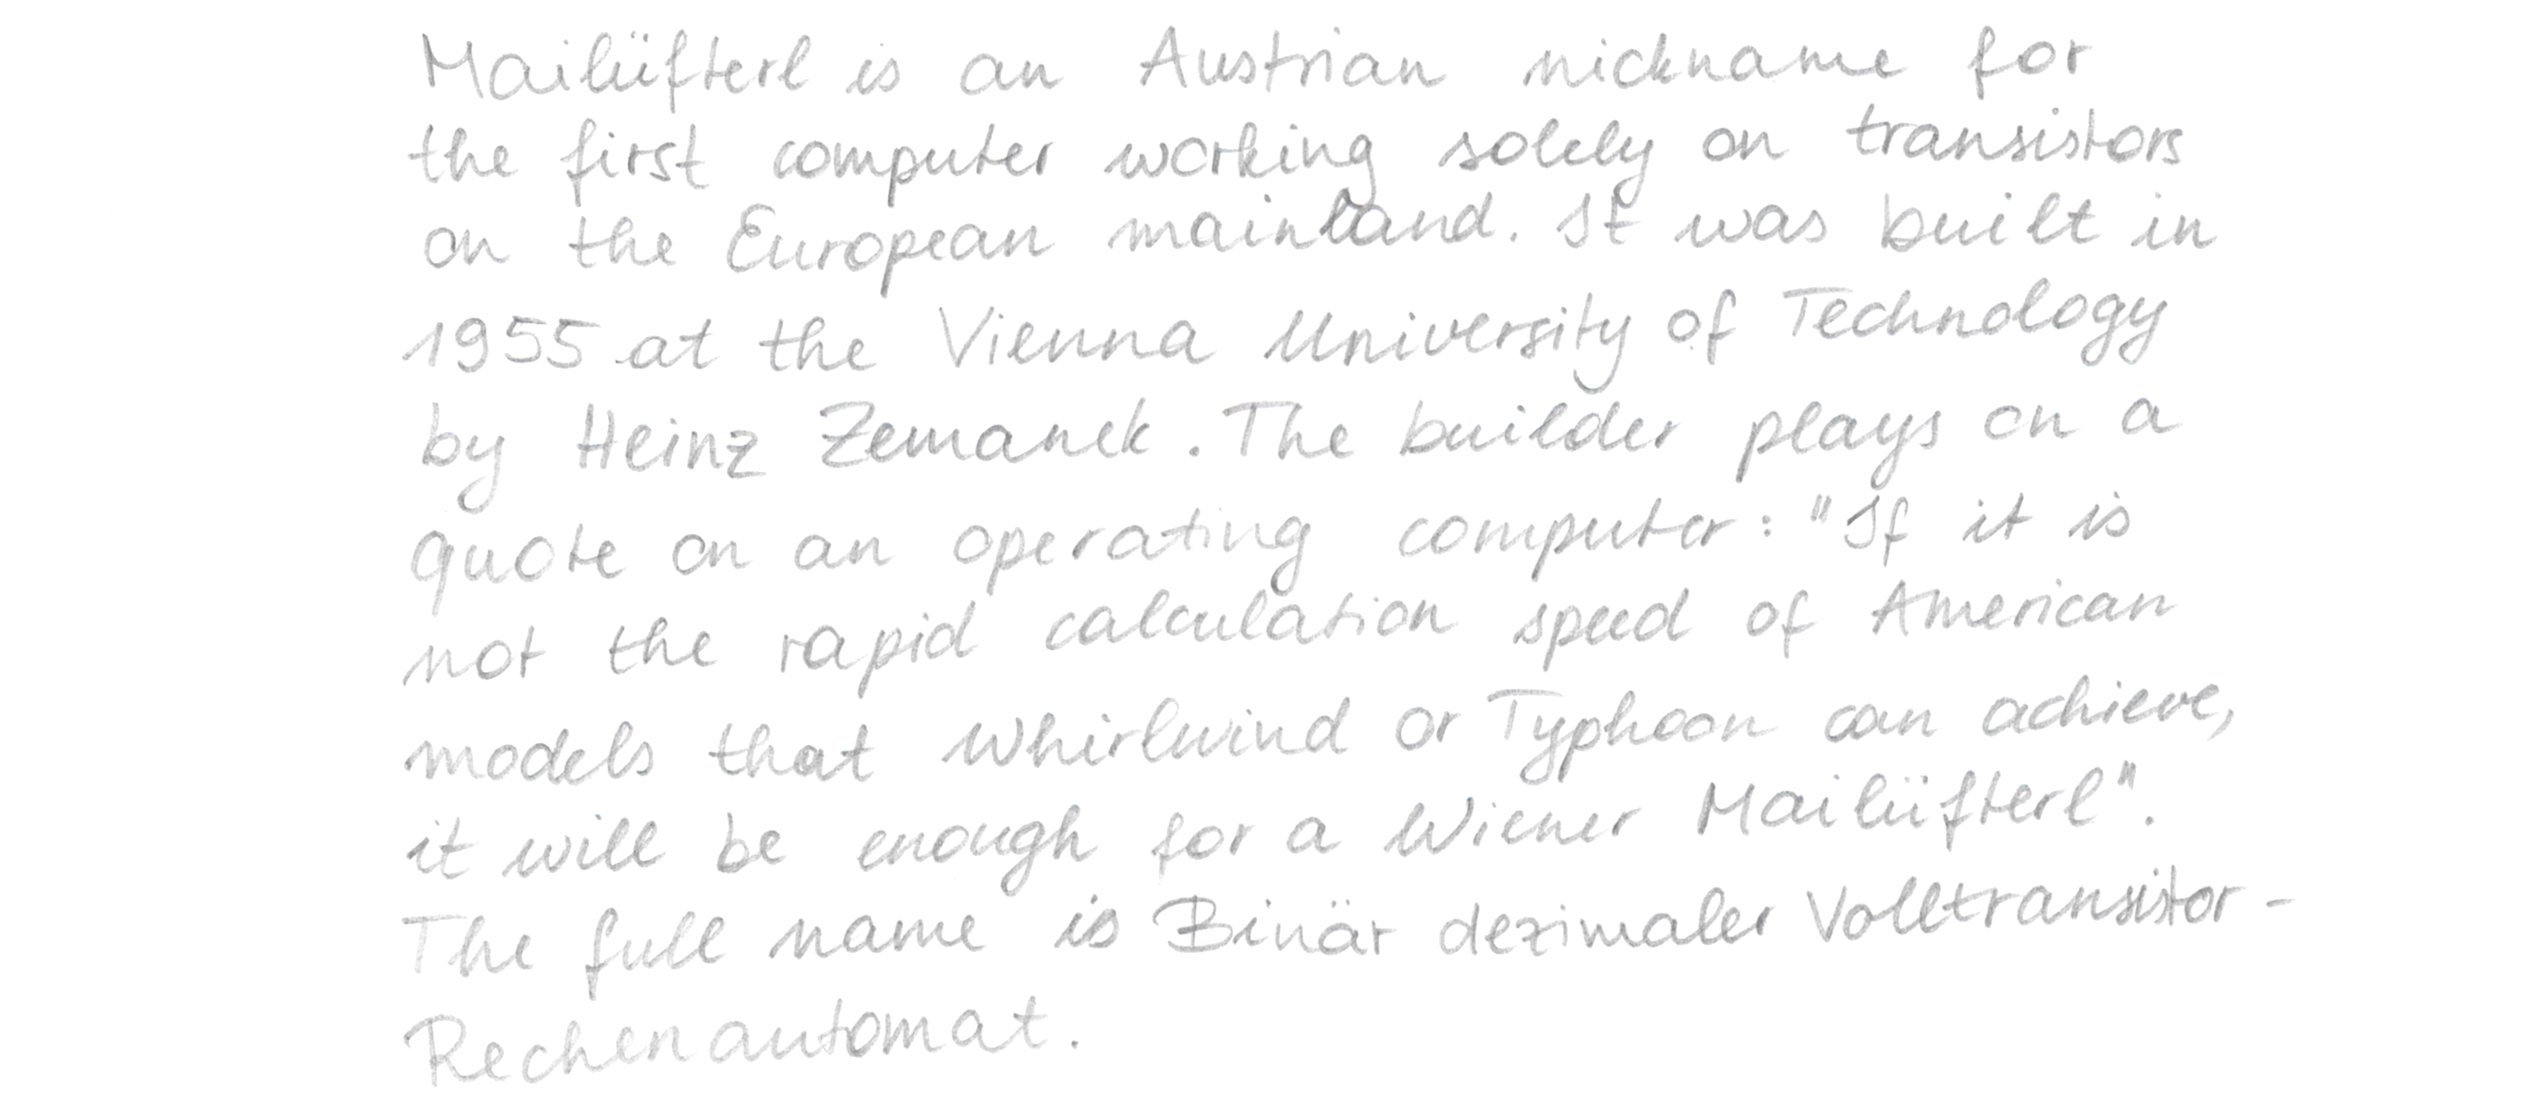 Mailüfterl is an Austrian nickname for
the first computer working solely on transistors
on the European mainland. It was built in
1955 at the Vienna University of Technology
by Heinz Zemanek. The builder plays on a
quote on an operating computer: "If it is
not the rapid calculation speed of American
models that Whirlwind or Typhoon can achieve,
it will be enough for a Wiener Mailüfterl".
The full name is Binär dezimaler Volltransistor-
Rechenautomat.